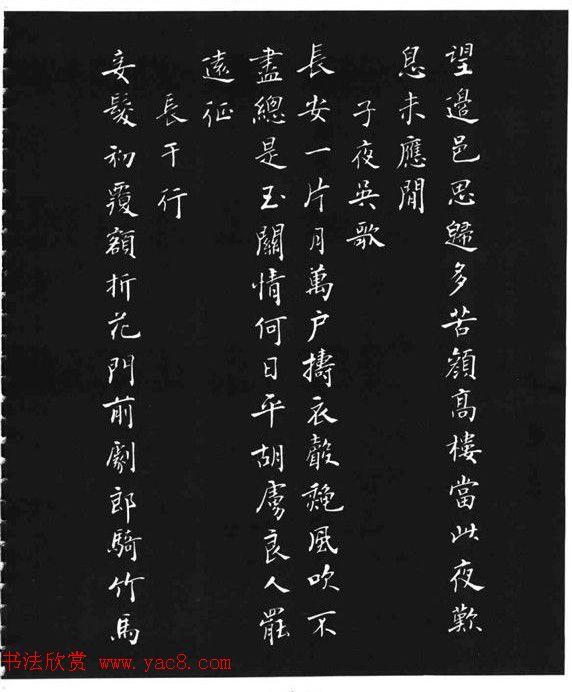 望邊邑思歸多苦顏高樓當此夜歎
息未應閒
子夜吳歌
長安一片月萬戶擣衣聲秋風吹不
盡總是玉關情何日平胡虜良人罷
遠征
長干行
妾髮初覆額折花門前劇郎騎竹馬
书法欣赏 www.yac8.com